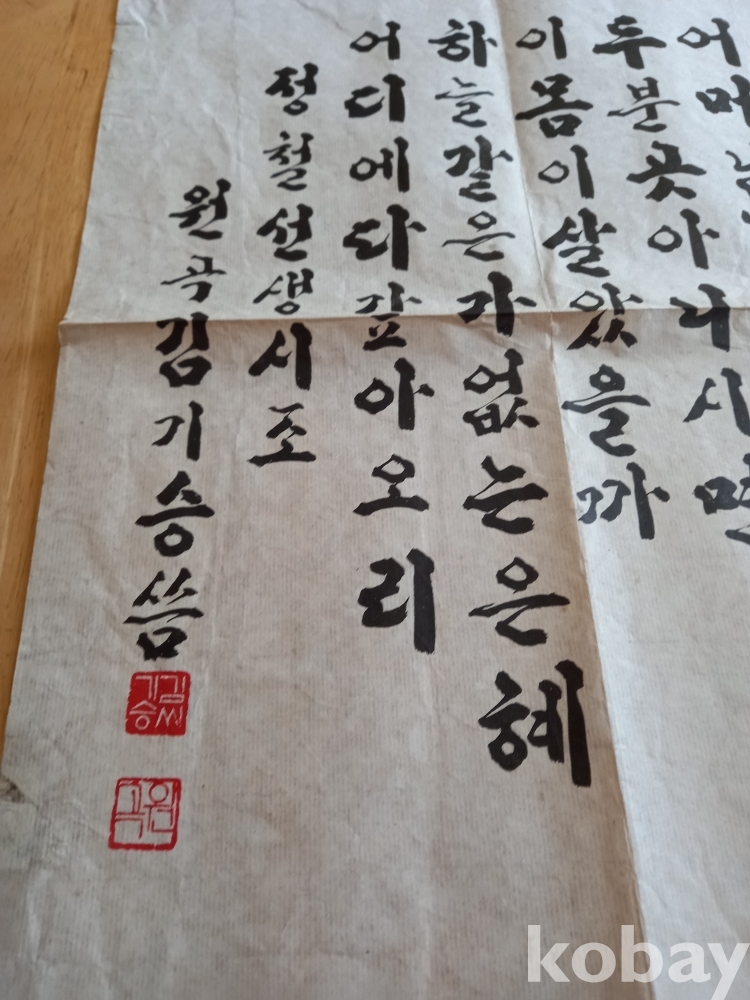 어머님
두분곳아니시면
이몸이살았을까
하늘같은가없는은혜
어디에다갚아오리
정철선생시조
원곡김기승씀
김씨기승
원곡
kobay